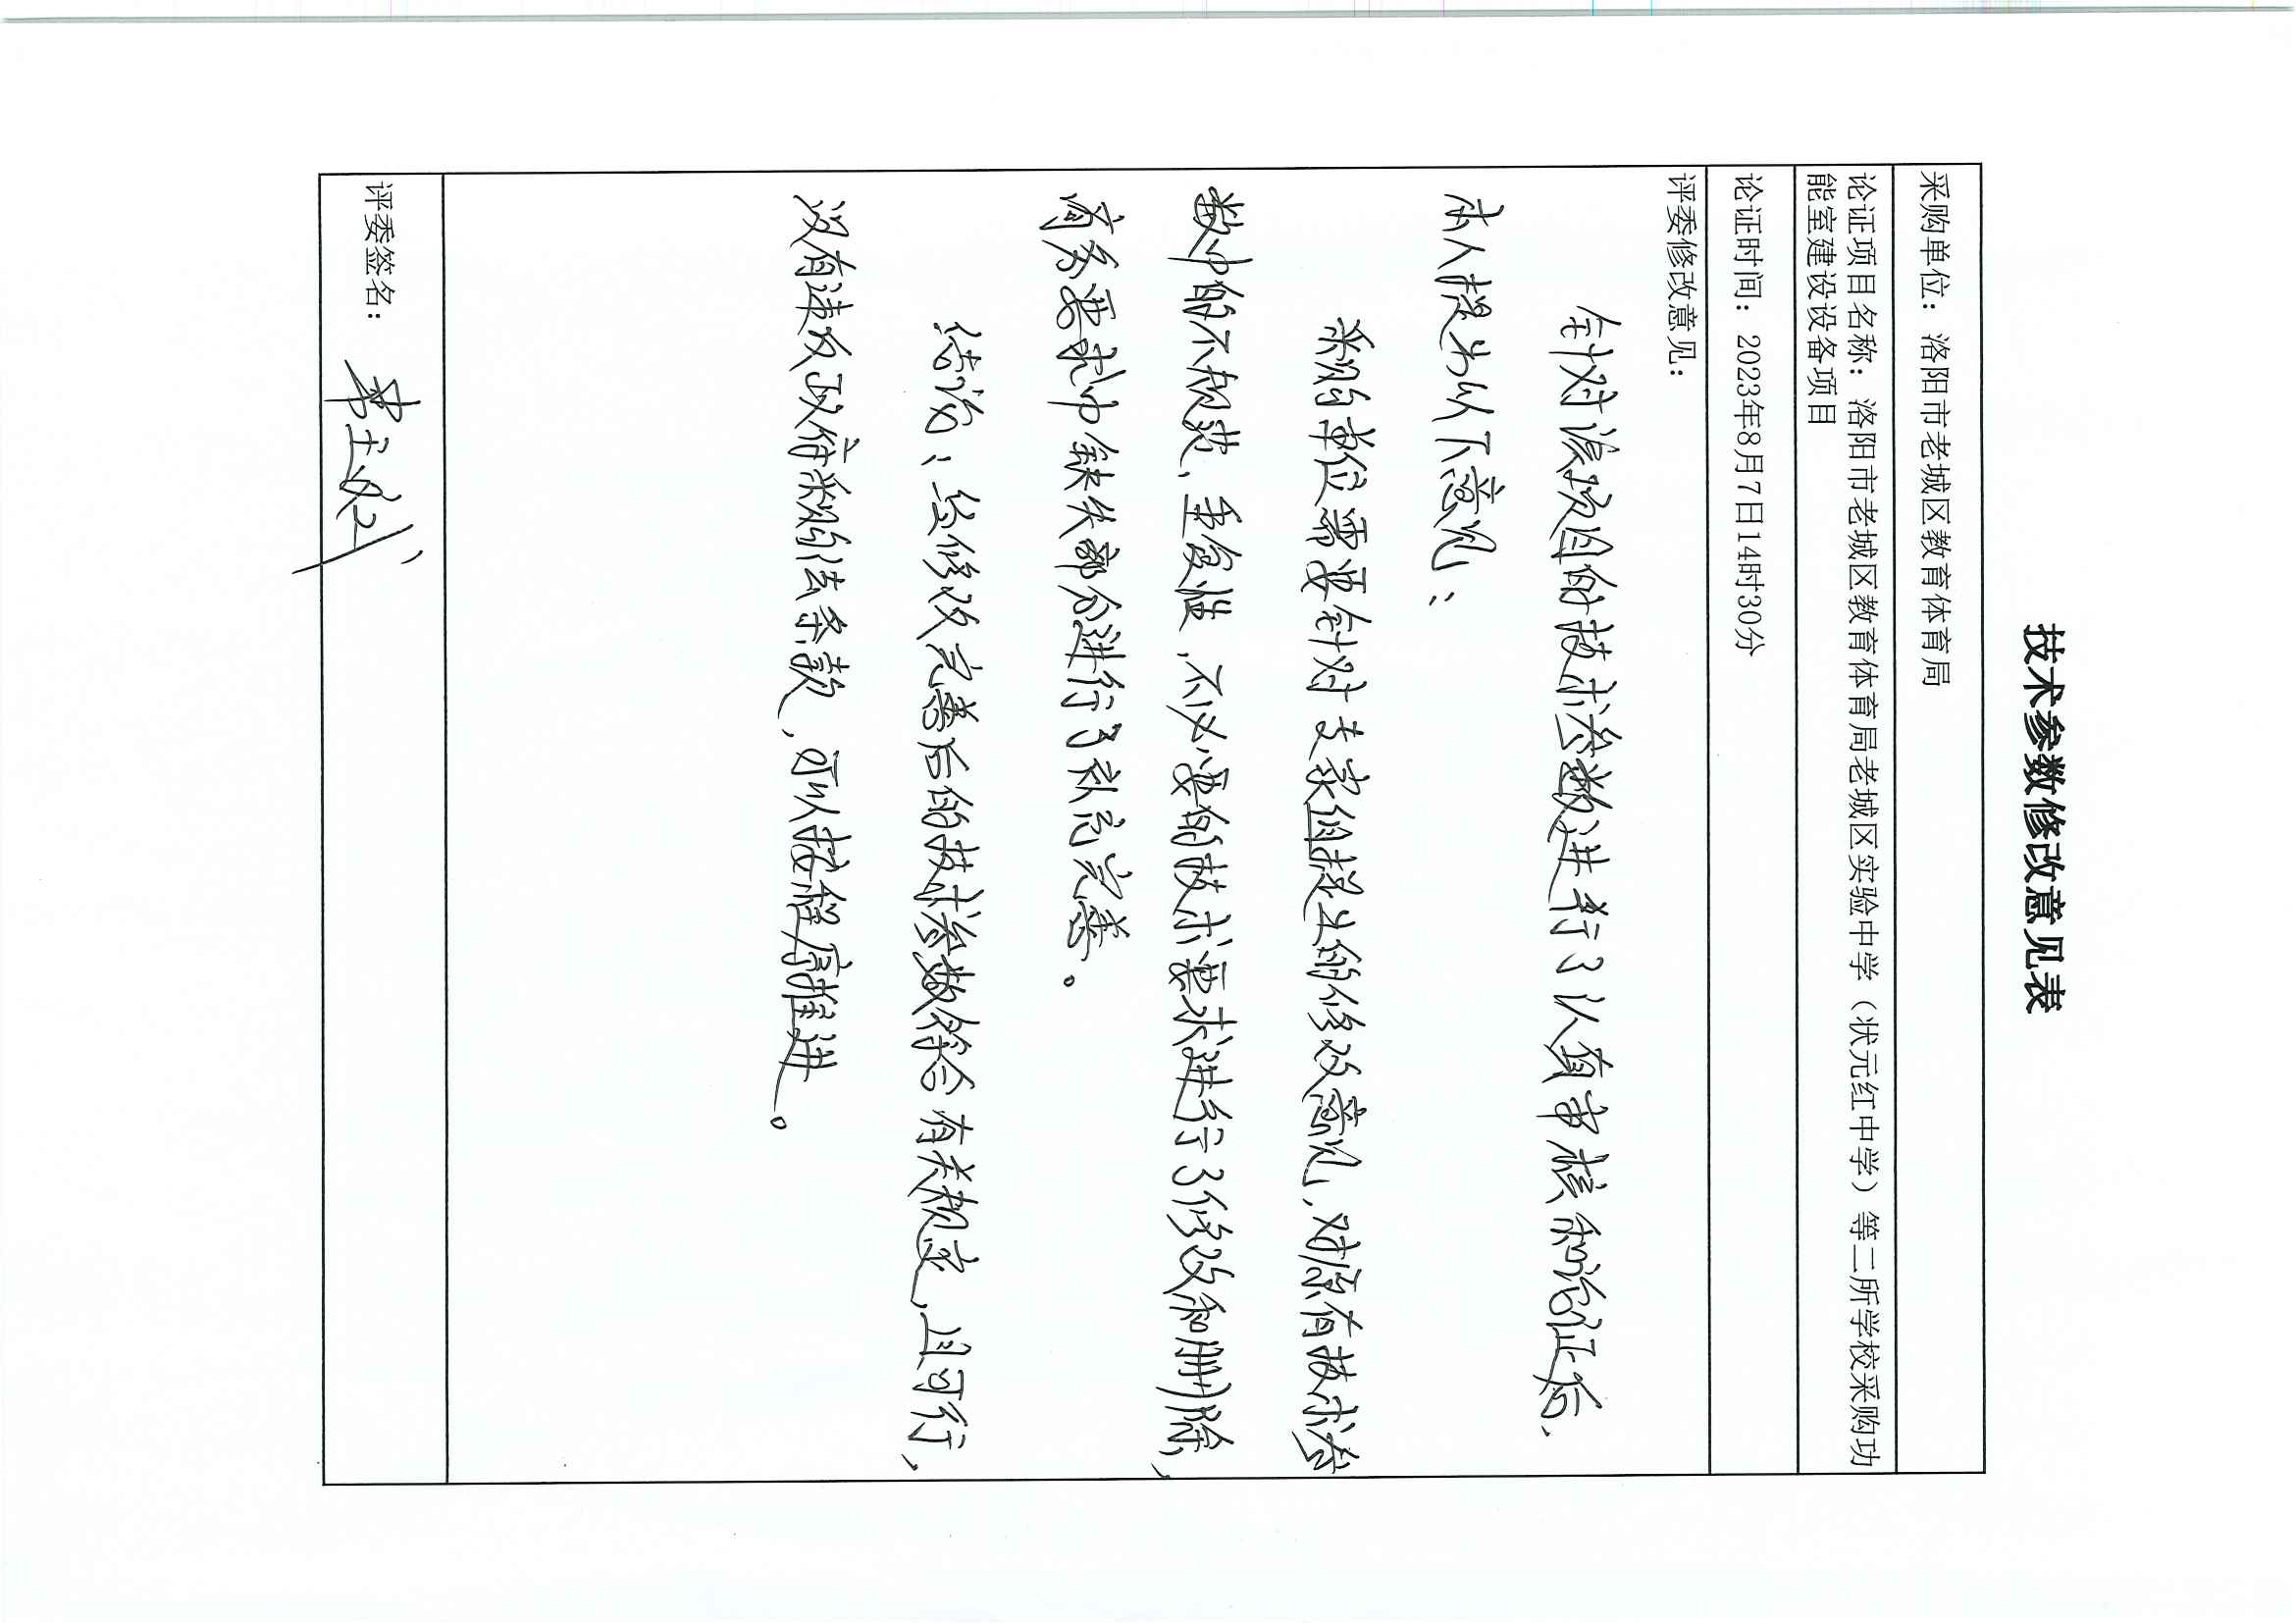 技术参数修改意见表
采购单位：洛阳市老城区教育体育局
论证项目名称：洛阳市老城区教育体育局老城区实验中学（状元红中学）等二所学校采购功
能室建设设备项目
论证时间：2023年8月7日14时30分
评委修改意见：
针对该项目的技术参数进行了认真审核和论证后，
本人提出以下意见：
采购单位需要针对专家组提出的修改意见，对原有技术参
数中的不规范、重复性、不必要的技术要求进行了修改和删除，
商务要求中缺失部分进行了补充完善。
结论：经修改完善后的技术参数符合有关规定，且可行，
没有违反政府采购法条款，可以按程序推进。
评委签名：